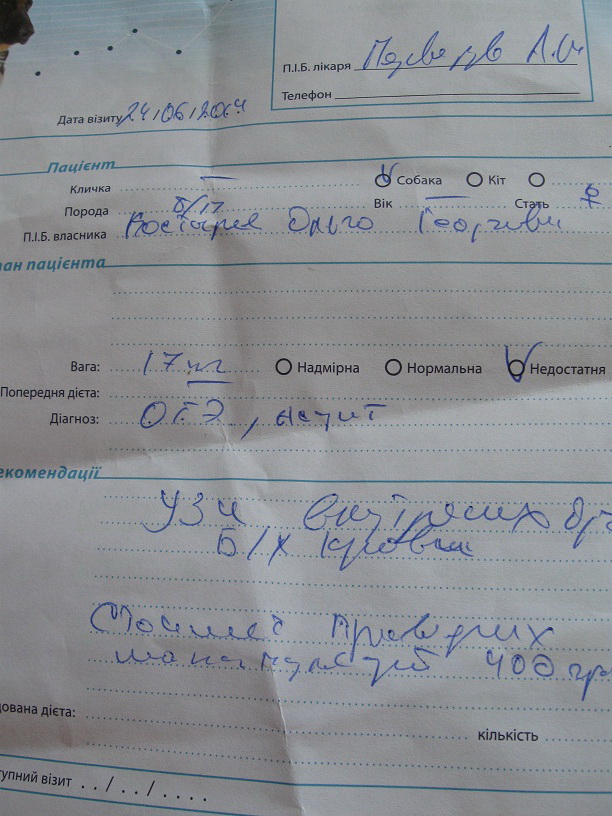 П.І.Б. лікаря
Телефон
Дата візиту 24.06.20
Пацієнт
Кличка — Собака Кіт
Порода б/п Вік — Стать ♀
П.І.Б. власника Ольга Георгіївн
ан пацієнта
Вага: 17 кг Надмірна Нормальна Недостатня
Попередня дієта: —
Діагноз: асцит
екомендації
УЗИ внутрішніх
Б/х крові
проведених
маніпуляцій 400 гр
дована дієта:
кількість
тупний візит . . / . . / . . . .